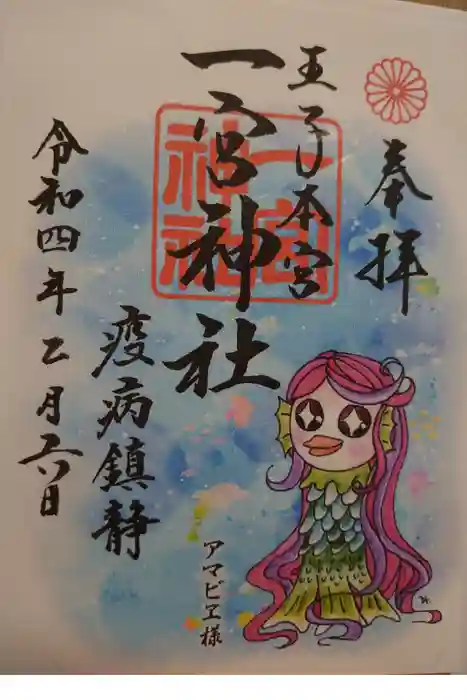 奉拝
王子本宮
一宮神社
一宮神社
疫病鎮静
アマビヱ様
令和四年乙月六日